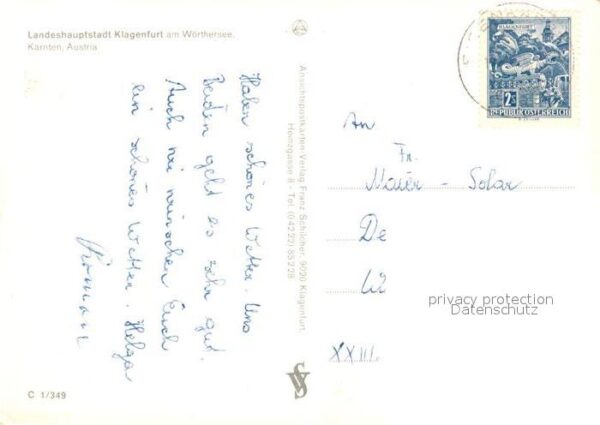 Landeshauptstadt Klagenfurt am Wörthersee,
Kärnten, Austria
Haben schönes Wetter. Uns
Beiden geht es sehr gut.
Auch wir wünschen Euch
ein schönes Wetter. Helga
Ansichtspostkarten-Verlag Franz Schilcher, 9020 Klagenfurt,
Heinzgasse 8 - Tel. (04222) 85228
KLAGENFURT
2S
REPUBLIK ÖSTERREICH
An
Fr.
Maier - Solar
De
W
XXIII.
privacy protection
Datenschutz
C 1/349